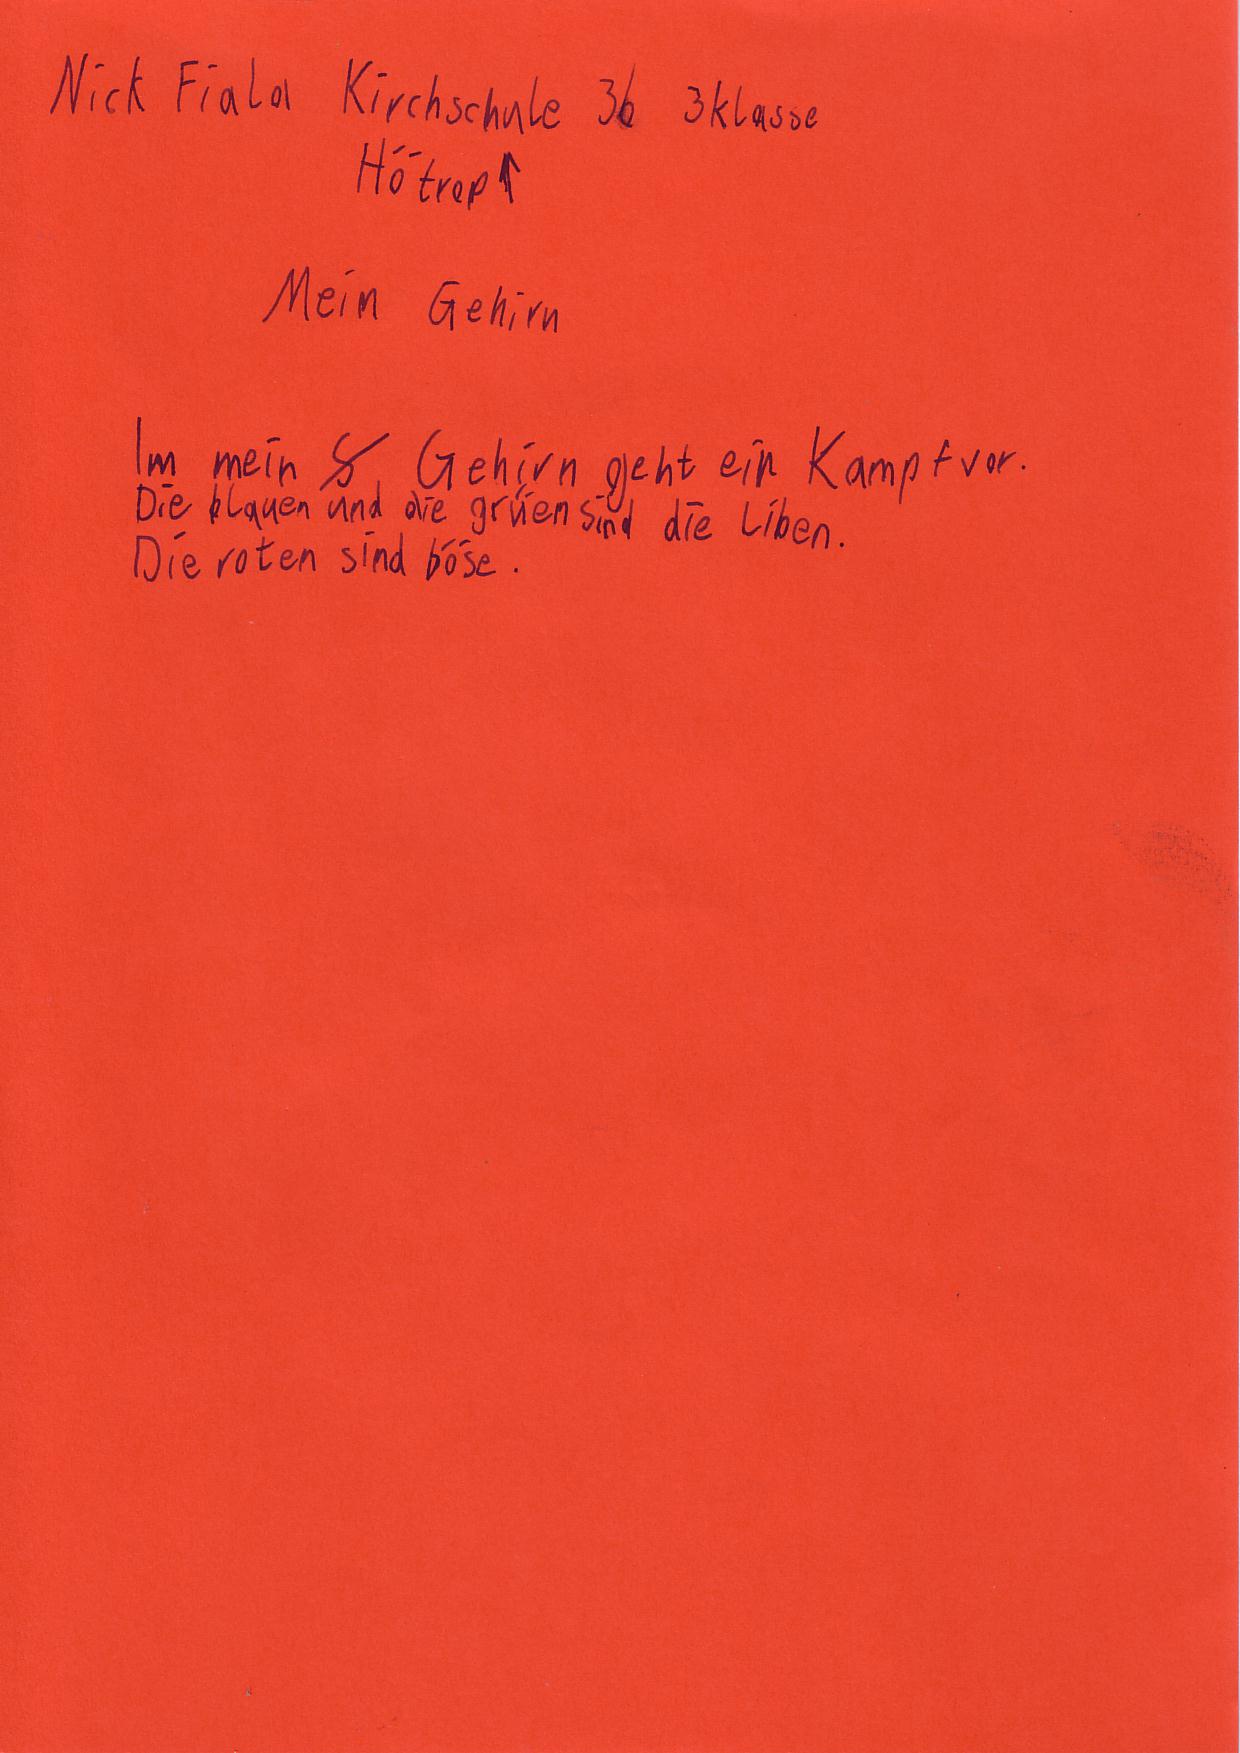 Nick Fiala Kirchschule 3b 3klasse
Hötrop↑
Mein Gehirn
Im mein Gehirn geht ein Kampf vor.
Die blauen und die grüen sind die Liben.
Die roten sind böse.